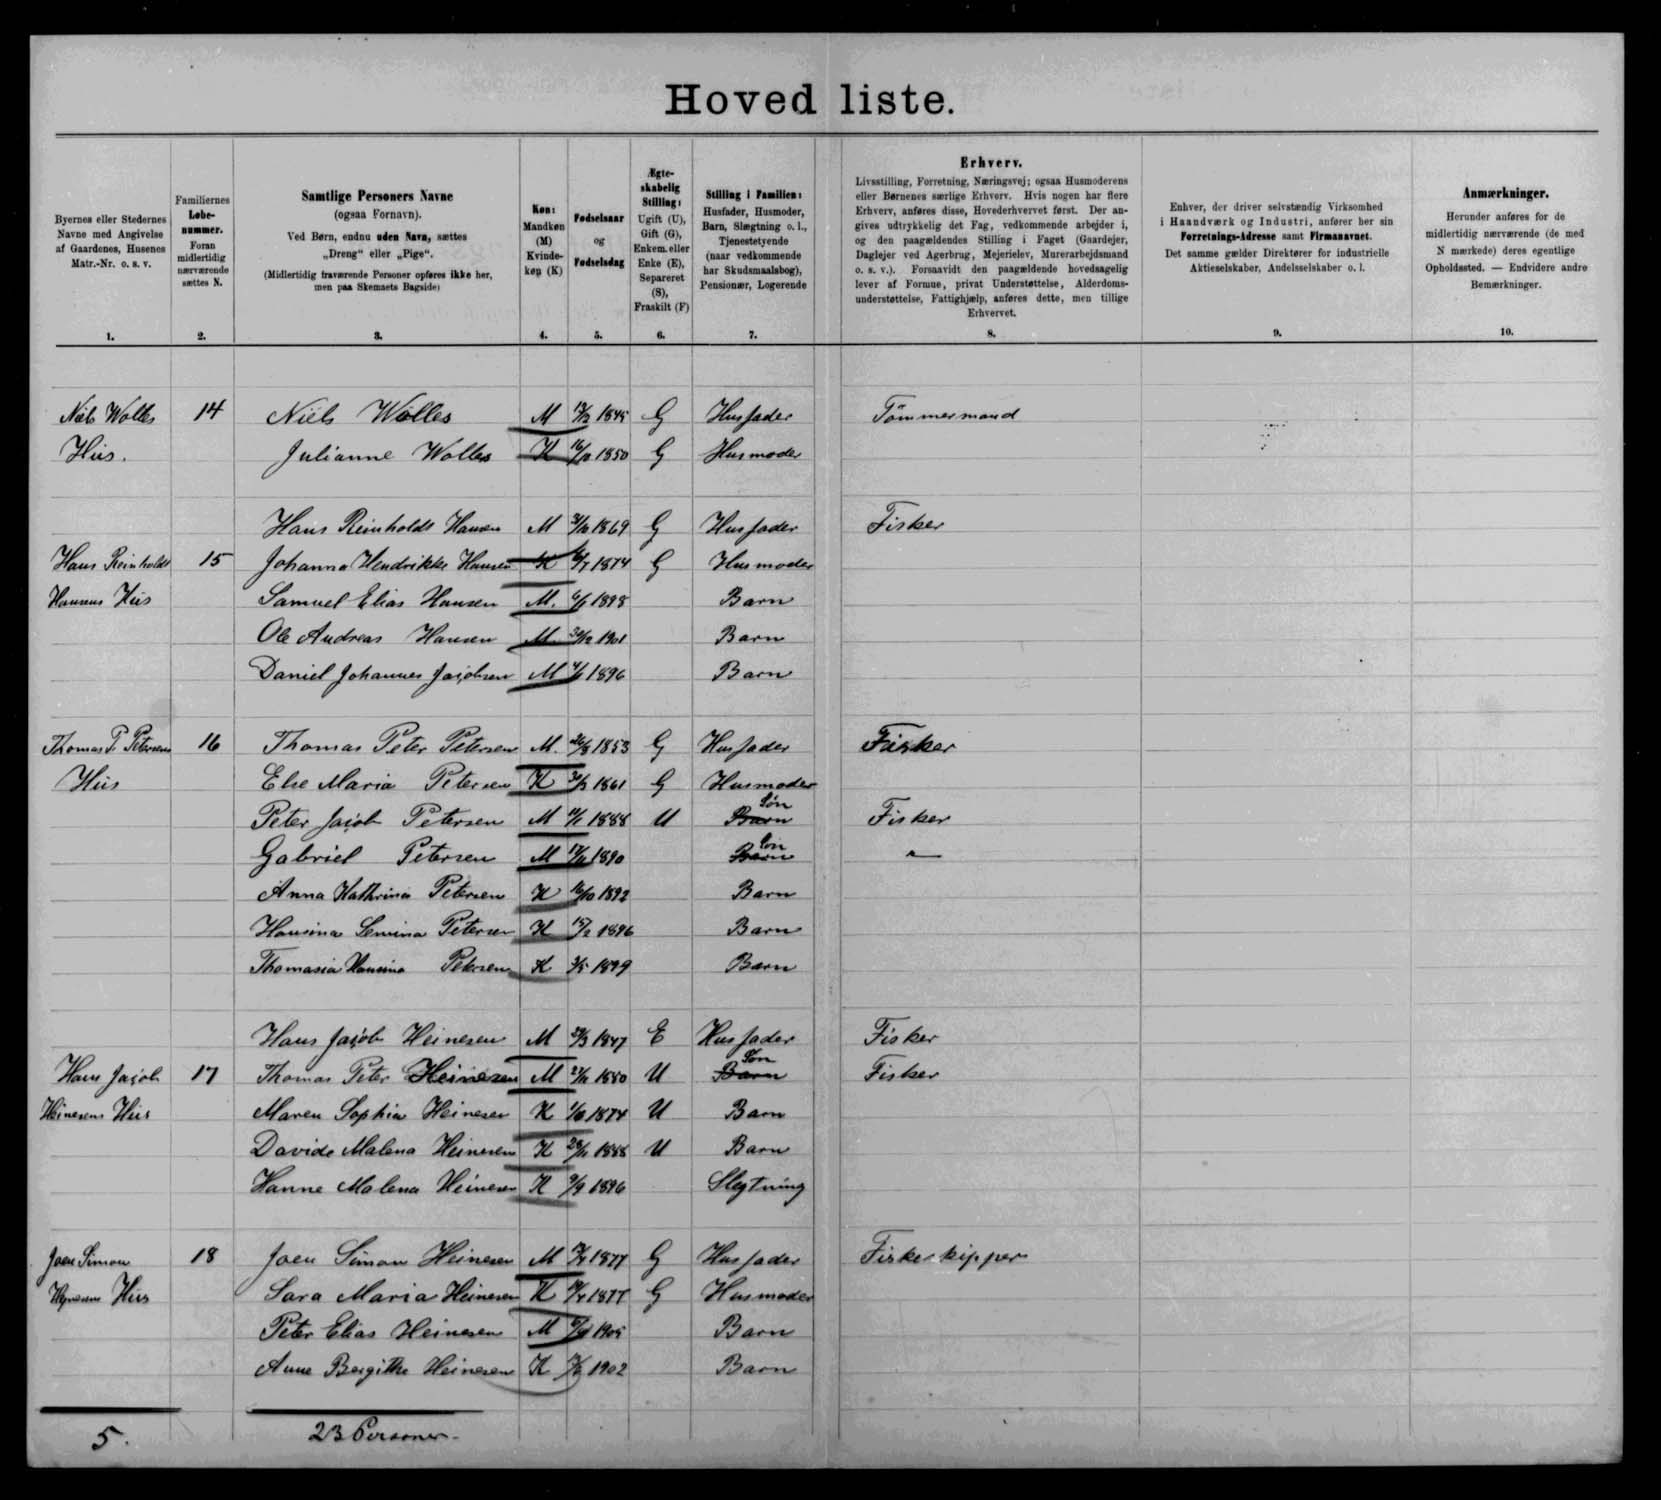 Hovedliste.
Byernes eller Stedernes Navne med Angivelse af Gaardenes, Husenes Matr.-Nr. o. s. v.
Familiernes Løbe-nummer. Foran midlertidig nærværende sættes N.
Samtlige Personers Navne (ogsaa Fornavn). Ved Børn, endnu uden Navn, sættes „Dreng" eller „Pige". (Midlertidig fraværende Personer opføres ikke her, men paa Skemaets Bagside)
Køn: Mandkøn (M) Kvinde-køn (K)
Fødselsaar og Fødselsdag
Ægte-skabelig Stilling: Ugift (U), Gift (G), Enkem. eller Enke (E), Separeret (S), Fraskilt (F)
Stilling i Familien: Husfader, Husmoder, Barn, Slægtning o. l., Tjenestetyende (naar vedkommende har Skudsmaalsbog), Pensionær, Logerende
Erhverv. Livsstilling, Forretning, Næringsvej; ogsaa Husmoderens eller Børnenes særlige Erhverv. Hvis nogen har flere Erhverv, anføres disse, Hovederhvervet først. Der an-gives udtrykkelig det Fag, vedkommende arbejder i, og den paagældendes Stilling i Faget (Gaardejer, Daglejer ved Agerbrug, Mejerielev, Murerarbejdsmand o. s. v.). Forsaavidt den paagældende hovedsagelig lever af Formue, privat Understøttelse, Alderdoms-understøttelse, Fattighjælp, anføres dette, men tillige Erhvervet.
Enhver, der driver selvstændig Virksomhed i Haandværk og Industri, anfører her sin Forretnings-Adresse samt Firmanavnet. Det samme gælder Direktører for industrielle Aktieselskaber, Andelsselskaber o. l.
Anmærkninger. Herunder anføres for de midlertidig nærværende (de med N mærkede) deres egentlige Opholdssted. — Endvidere andre Bemærkninger.
1. 2. 3. 4. 5. 6. 7. 8. 9. 10.
Niels Wolles 14 Niels Wolles M 1845 G Husfader Tömmermand
Hus. Julianne Wolles K 1850 G Husmoder
Hans Reinholdt Hansen M 1869 G Husfader Fisker
Hans Reinholdt 15 Johanna Hendrikke Hansen K 1874 G Husmoder
Hansens Hus Samuel Elias Hansen M. 1898 Barn
Ole Andreas Hansen M 1901 Barn
Daniel Johannes Jacobsen M 1896 Barn
Thomas P. Petersens 16 Thomas Peter Petersen M. 1853 G Husfader Fisker
Hus Else Maria Petersen K 1861 G Husmoder
Peter Jacob Petersen M 1888 U Barn Søn Fisker
Gabriel Petersen M 1890 Barn Søn "
Anna Kathrina Petersen K 16/10 1892 Barn
Hansina Petersen K 15/2 1896 Barn
Thomasia Hansina Petersen K 3/5 1899 Barn
Hans Jacob Heinesen M 1847 E Husfader Fisker
Hans Jacob 17 Thomas Peter Heinesen M 1880 U Barn Søn Fisker
Heinesens Hus Maren Sophia Heinesen K 1874 U Barn
Davide Malena Heinesen K 1888 U Barn
Hanne Malena Heinesen K 9/9 1896 Slegtning
Joen Simon 18 Joen Simon Heinesen M 1877 G Husfader Fiskeskipper
Hus Sara Maria Heinesen K 1877 G Husmoder
Peter Elias Heinesen M 1905 Barn
Anne Bergithe Heinesen K 1902 Barn
5. 23 Personer.